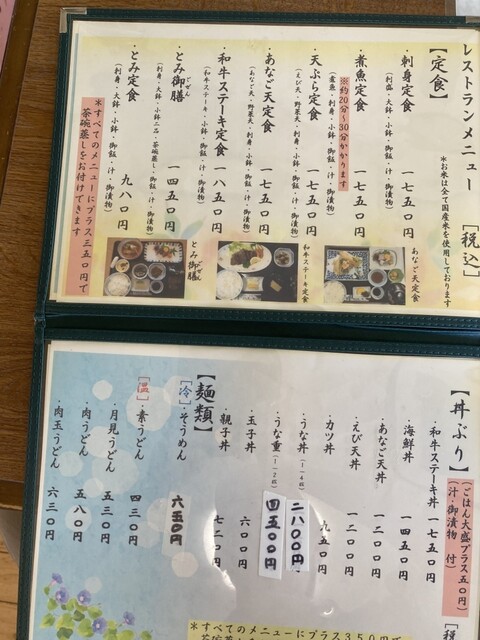 レストランメニュー [税込]
【定食】
＊お米は全て国産米を使用しております
・刺身定食 一七五0円
・煮魚定食 一七五0円
※約20分～30分かかります
(煮魚・刺身・小鉢・御飯・汁・御漬物)
・天ぷら定食 一七五0円
(えび天・野菜天・刺身・小鉢・御飯・汁・御漬物)
・あなご天定食 一七五0円
(あなご天・野菜天・刺身・小鉢・御飯・汁・御漬物)
・和牛ステーキ定食 一八五0円
(和牛ステーキ・小鉢・御飯・汁・御漬物)
・とみ御膳 一四五0円
ごぜん
(刺身・大鉢・小鉢二品・茶碗蒸し・御飯・汁・御漬物)
・とみ定食 九八0円
(刺身・大鉢・小鉢・御飯・汁・御漬物)
＊すべてのメニューにプラス三五0円で
茶碗蒸しをお付けできます
あなご天定食
和牛ステーキ定食
とみ御膳
ごぜん
【丼ぶり】
(ごはん大盛プラス五0円)
(汁・御漬物 付)
[税
・和牛ステーキ丼 一七五0円
・海鮮丼 一四五0円
・あなご天丼 一二00円
・えび天丼 一二00円
・カツ丼 九五0円
・うな丼 二八00円
・うな重 四五00円
・玉子丼 六00円
・親子丼 七二0円
【麺類】
[冷]・そうめん 六五0円
[温]・素うどん 四三0円
・月見うどん 五三0円
・肉うどん 五八0円
・肉玉うどん 六三0円
＊すべてのメニューにプラス350円で